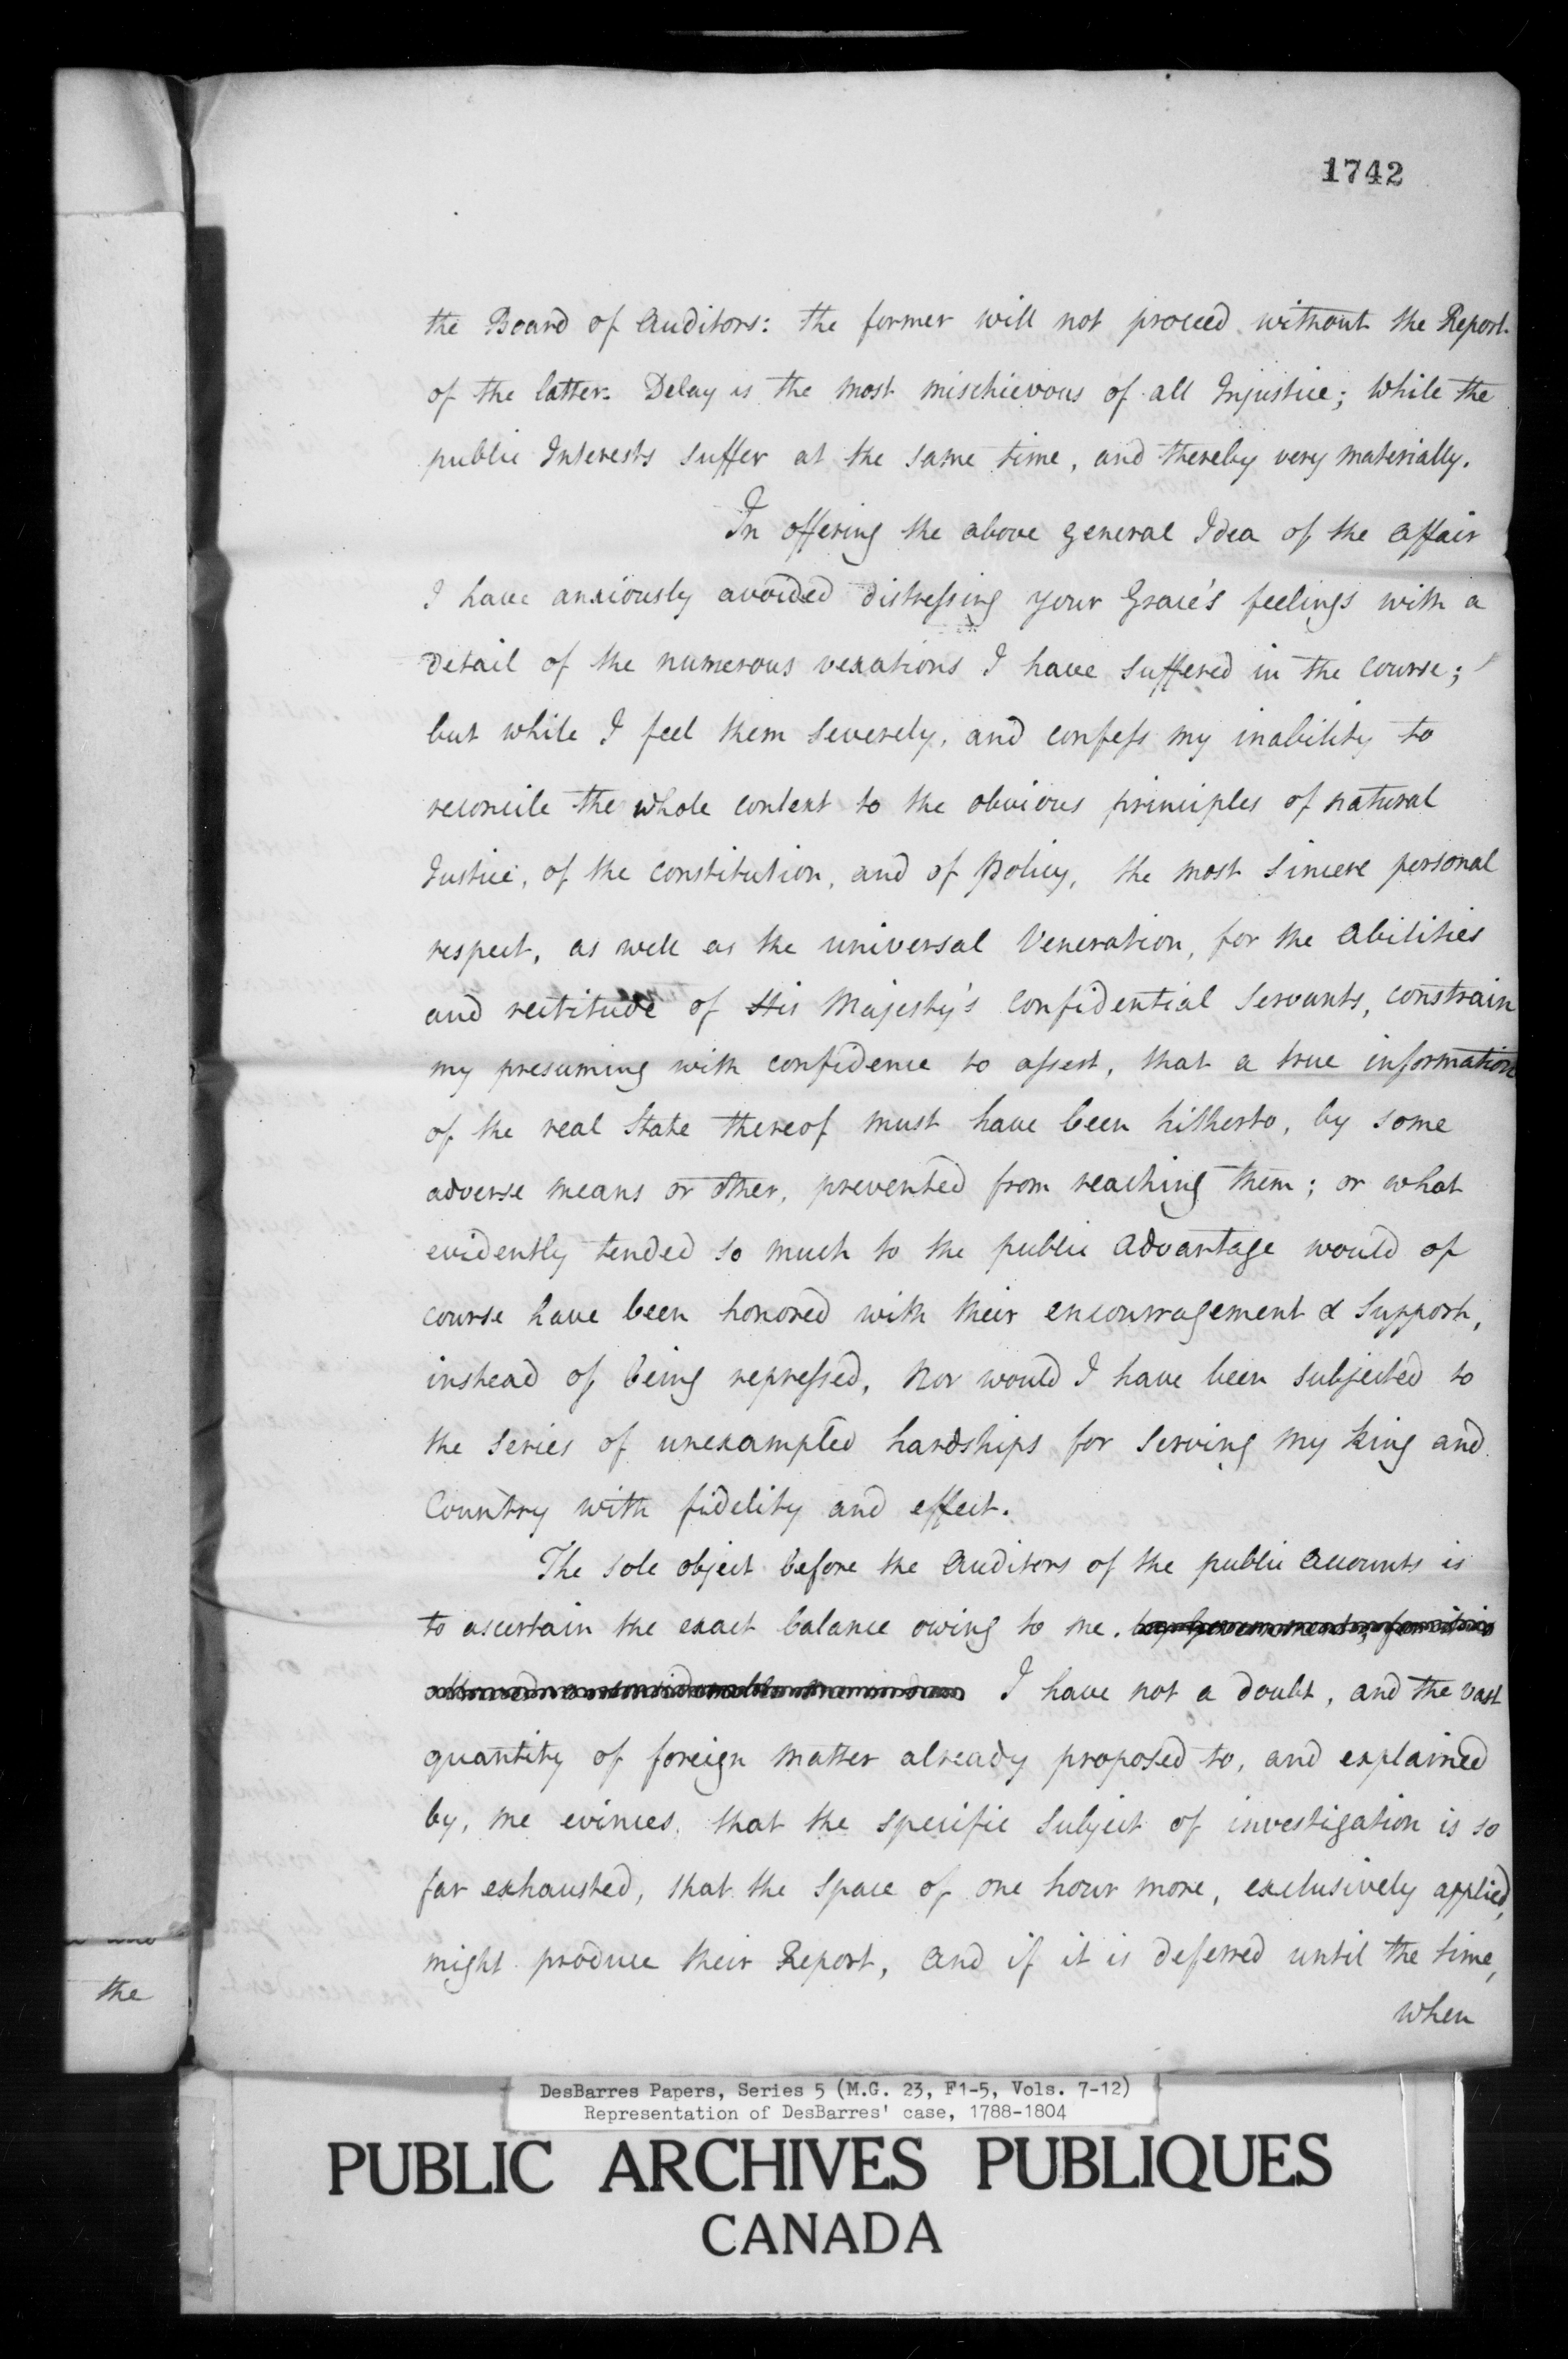 1742
the Board of Auditors: the former will not proceed without the Report
of the latter. Delay is the most mischievous of all Injustice; While the
public Interests suffer at the same time, and thereby very materially.
In offering the above general Idea of the affair
I have anxiously avoided distressing your Grace's feelings with a
detail of the numerous vexations I have suffered in the course;
but while I feel them severely, and confess my inability to
reconcile the whole context to the obvious principles of natural
Justice, of the constitution, and of Policy, the most sincere personal
respect, as well as the universal Veneration, for the Abilities
and rectitude of His Majesty's Confidential Servants, constrain
my presuming with confidence to assert, that a true information
of the real State thereof must have been hitherto, by some
adverse means or other, prevented from reaching them; or what
evidently tended so much to the public Advantage would of
course have been honored with their encourragement & Support,
instead of being repressed, Nor would I have been subjected to
the series of unexampled hardships for serving My King and
Country with fidelity and effect.
The sole object before the Auditors of the public Accounts is
to ascertain the exact balance owing to me. by Government, for it is
I have not a doubt, and the vast
quantity of foreign matter already proposed to, and explained
by, me evinces, that the specific Subject of investigation is so
far exhausted, that the Space of one hour more, exclusively applied,
might produce their Report, And if it is deferred until the time,
when
the
DesBarres Papers, Series 5 (M.G. 23, F1-5, Vols. 7-12)
Representation of DesBarres' case, 1788-1804
PUBLIC ARCHIVES PUBLIQUES
CANADA